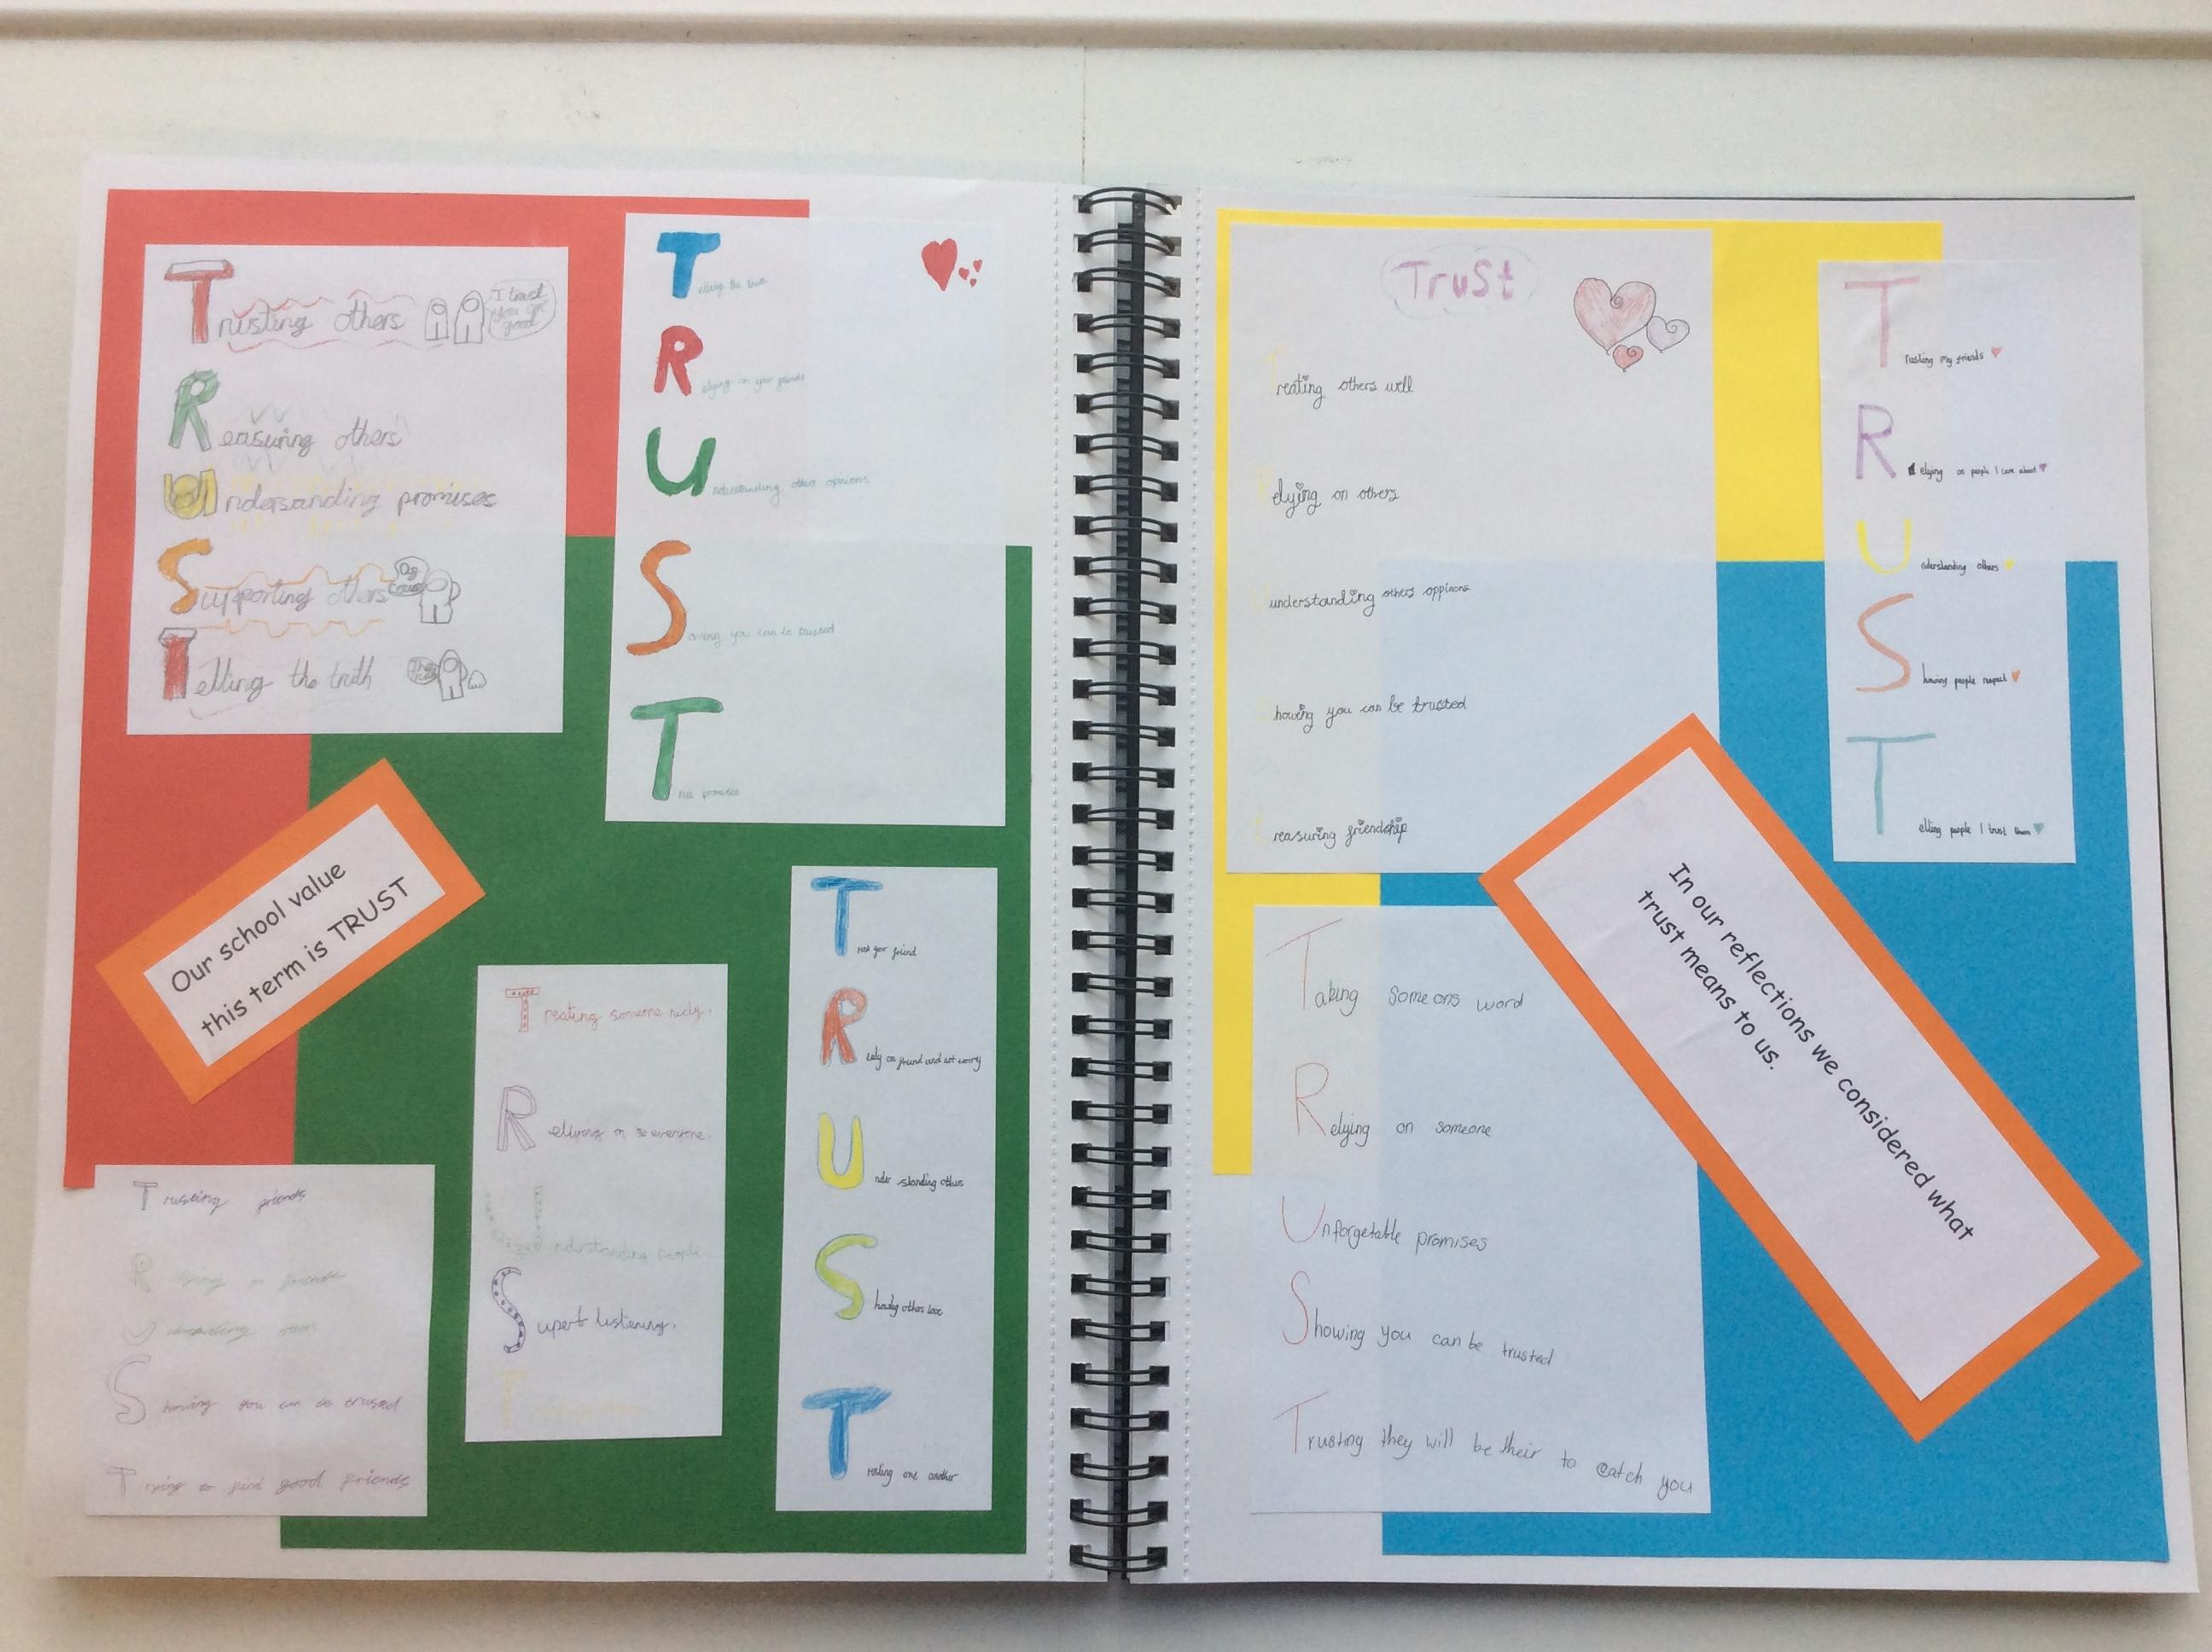 Trusting others
I trust you ar good
Reasuring others
Undersanding promises
Supporting others
Telling the truth
Telling the
Relying on your friends
Understanding others opinions
Sowing you can be trusted
True promises
Our school value
this term is TRUST
Trusting friends
Relying on friends
U
Showing you can be trusted
Trying to find good friends
Treating someone nicly.
Reliving on everyone.
Understanding people.
Supert listening.
T
Trust your friend
R rely on friend and not worry
Under standing others
Showing other love
Trusting one another
Trust
Treating others well
Relying on others
understanding others oppinons
howing you can be trusted
Treasuring friendship
Trusting my friends
Relying on people I care about
Understanding others
Showing people respect
Telling people I trust them
In our reflections we considered what
trust means to us.
Taking someons word
Relying on someone
Unforgetable promises
Showing you can be trusted
Trusting they will be their to catch you